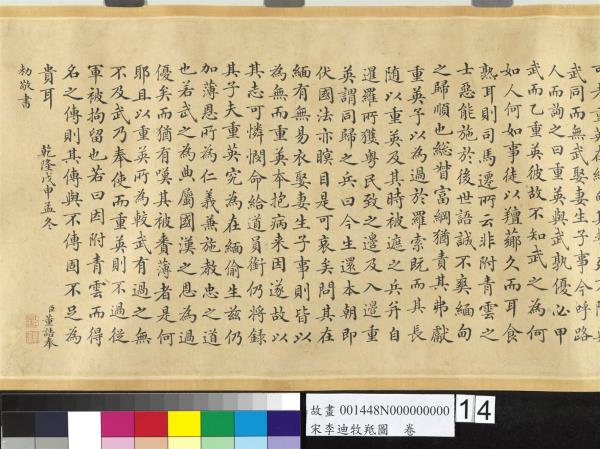 武同而無武娶妻生子事今呼路
人而詢之曰重英與武孰優必甲
武而乙重英彼故不知武之為何
如人何如事徒以羶薌久而耳食
熟耳則司馬遷所云非附青雲之
士惡能施於後世語誠不爽緬甸
之歸順也總督富綱猶責其弗獻
重英予以為過於羅索既而其長
隨以重英及其時被遮之兵弁自
暹羅所獲粵民致之邊及入邊重
英謂同歸之兵曰今生還本朝即
伏國法亦瞑目是可哀矣問其在
緬有無易衣娶妻生子事則皆以
為無而重英本抱病来因遂故以
其志可憐憫命給道員銜仍将録
其子夫重英究為在緬偷生茲仍
加薄恩所為仁義兼施教忠之道
也若武之為典屬國漢之恩為過
優矣而猶有嘆其被賚薄者是何
耶且以重英所為較武有過之無
不及武乃奉使而重英則不過從
軍被拘留也若曰因附青雲而得
名之傳則其傳與不傳固不足為
貴耳
乾隆戊申孟冬
臣董誥奉
勅敬書
故畫 001448N000000000
宋李迪牧羝圖 卷
14